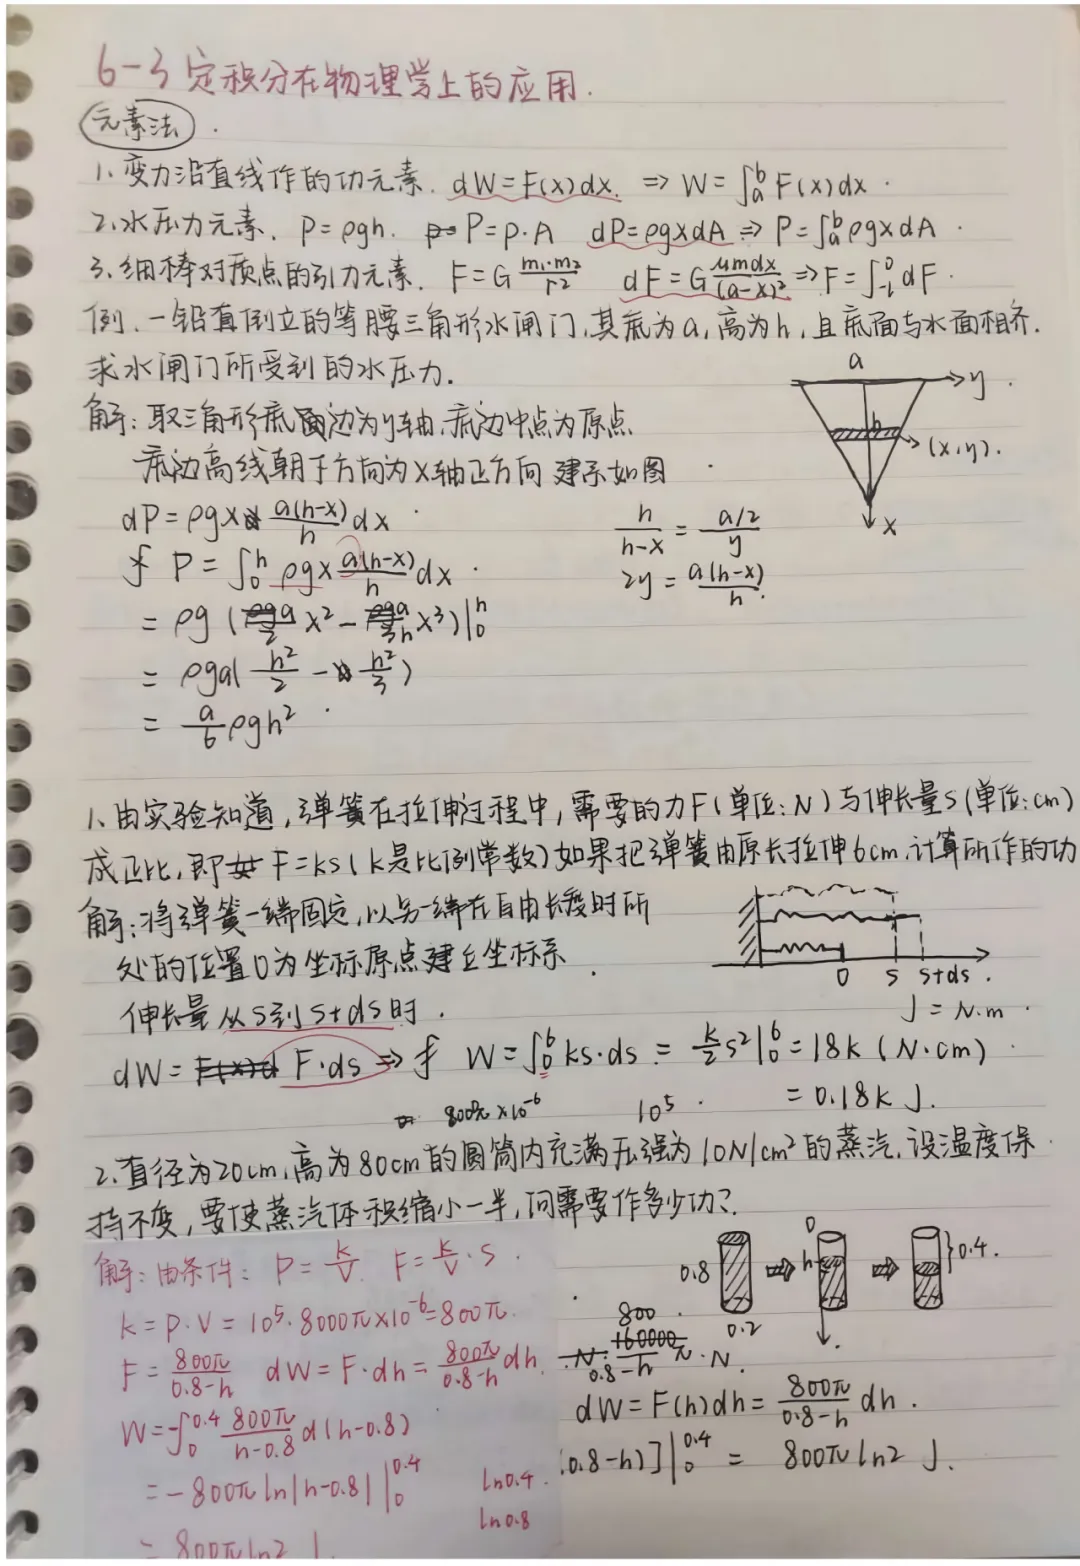 6-3 定积分在物理学上的应用.
元素法.
1.变力沿直线作的功元素. dW=F(x)dx. ⇒ W=∫_a^b F(x)dx.
2.水压力元素. P=ρgh. P=p·A dP=ρgxdA ⇒ P=∫_a^b ρgxdA.
3.细棒对质点的引力元素. F=G m₁·m₂/r² dF=G μmdx/(a-x)² ⇒ F=∫_{-l}^0 dF.
例.一铅直倒立的等腰三角形水闸门,其底为a,高为h,且底面与水面相齐.
求水闸门所受到的水压力.
a
y
h
(x,y).
x
解:取三角形底边为y轴.底边中点为原点
底边高线朝下方向为x轴正方向 建系如图
dP=ρgx a(h-x)/h dx
h/(h-x) = (a/2)/y
P=∫_0^h ρgx a(h-x)/h dx.
2y = a(h-x)/h.
=ρg( x²- x³)|_0^h
=ρga( h²/2 - h²/3 )
= a/6 ρgh²
1.由实验知道,弹簧在拉伸过程中,需要的力F(单位:N)与伸长量S(单位:cm)
成正比,即 F=ks(k是比例常数)如果把弹簧由原长拉伸6cm.计算所作的功
解:将弹簧一端固定,以另一端在自由长度时所
处的位置0为坐标原点建立坐标系
0 s s+ds.
伸长量从s到s+ds时.
J=N·m.
dW= F·ds ⇒ W=∫_0^6 ks·ds = k/2 s²|_0^6 =18k (N·cm)
=0.18k J.
800π×10⁻⁶ 10⁵.
2.直径为20cm,高为80cm的圆筒内充满压强为10N/cm²的蒸汽.设温度保
持不变,要使蒸汽体积缩小一半,问需要作多少功?
解:由条件: P=k/V. F=k/V·S.
k=P·V=10⁵·8000π×10⁻⁶=800π.
F=800π/(0.8-h) dW=F·dh=800π/(0.8-h) dh.
W=-∫_0^0.4 800π/(h-0.8) d(h-0.8)
=-800π ln|h-0.8| |_0^0.4
ln0.4.
ln0.8
=800πln2 J.
0.8
0.2
0
h
0.4.
800/(0.8-h) π·N.
dW=F(h)dh=800π/(0.8-h) dh.
(0.8-h)]|_0^0.4 = 800πln2 J.